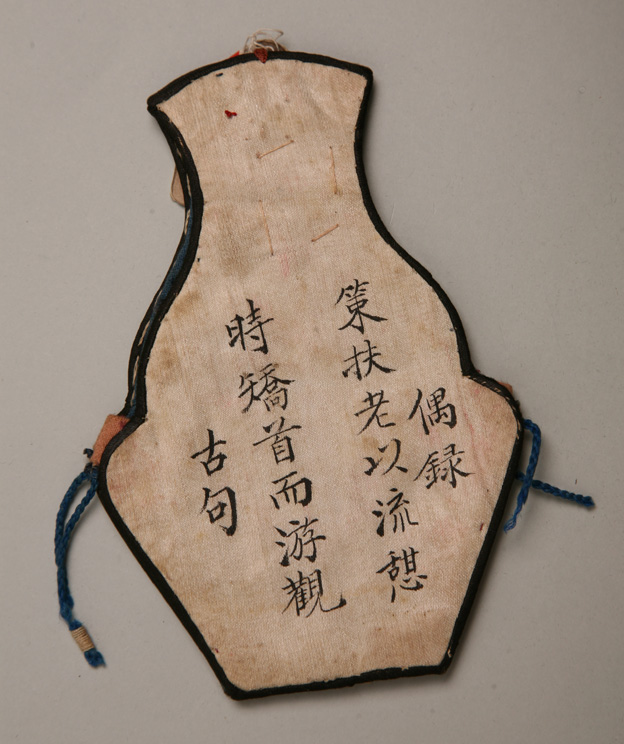 偶録
策扶老以流憇
時矯首而游觀
古句